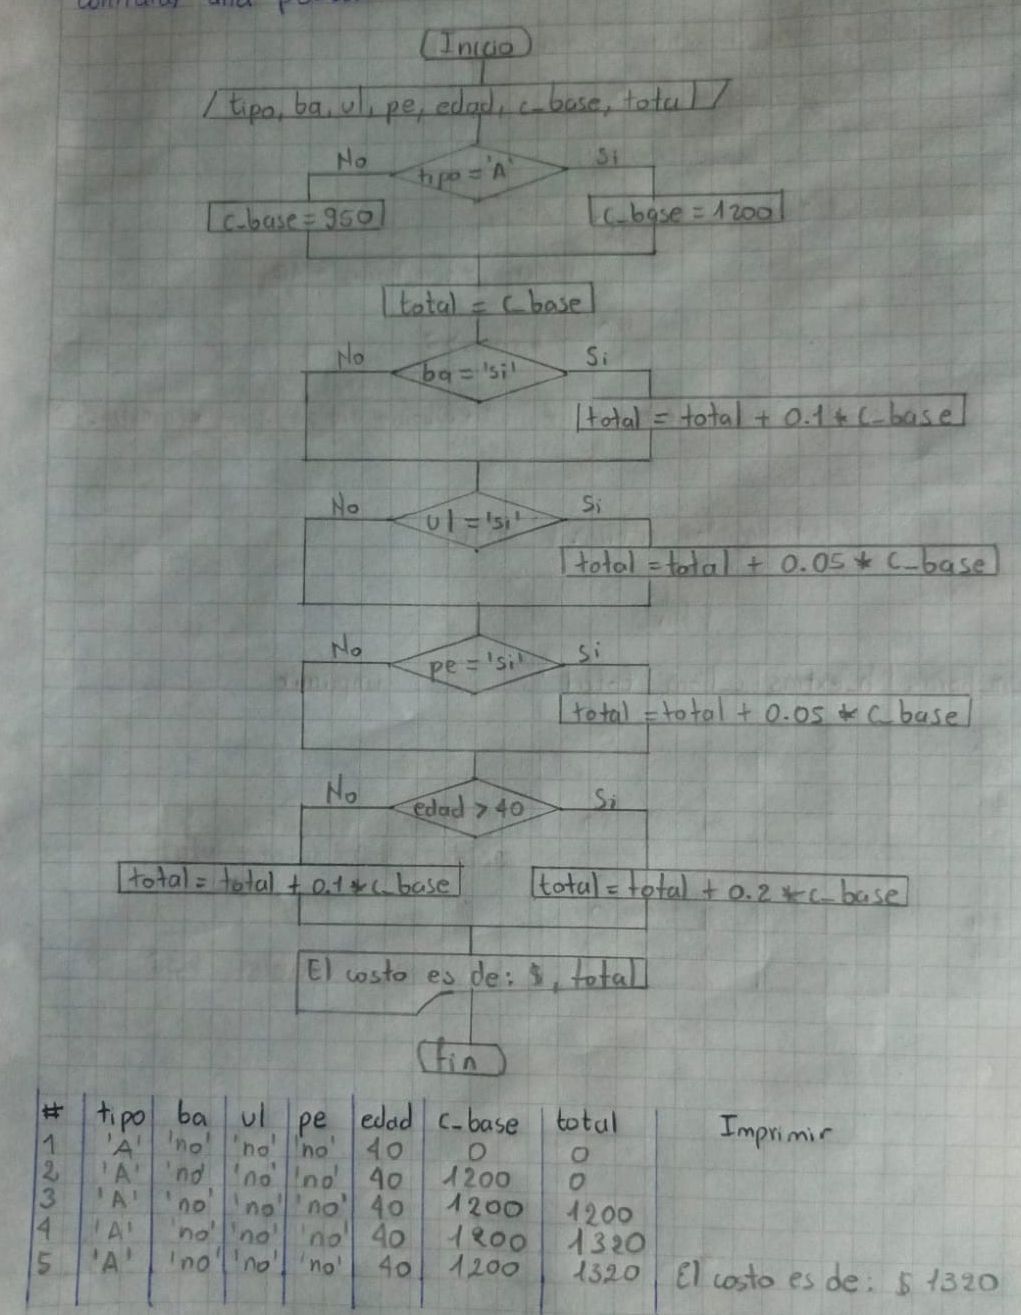 Inicio
tipo, ba, ul, pe, edad, c_base, total
No tipo = 'A' Si
c_base = 950 c_base = 1200
total = c_base
No ba = 'si' Si
total = total + 0.1 * c_base
No ul = 'si' Si
total = total + 0.05 * c_base
No pe = 'si' Si
total = total + 0.05 * c_base
No edad > 40 Si
total = total + 0.1 * c_base total = total + 0.2 * c_base
El costo es de: $, total
fin
# tipo ba ul pe edad c_base total Imprimir
1 'A' 'no' 'no' 'no' 40 0 0
2 'A' 'no' 'no' 'no' 40 1200 0
3 'A' 'no' 'no' 'no' 40 1200 1200
4 'A' 'no' 'no' 'no' 40 1200 1320
5 'A' 'no' 'no' 'no' 40 1200 1320 El costo es de: $ 1320